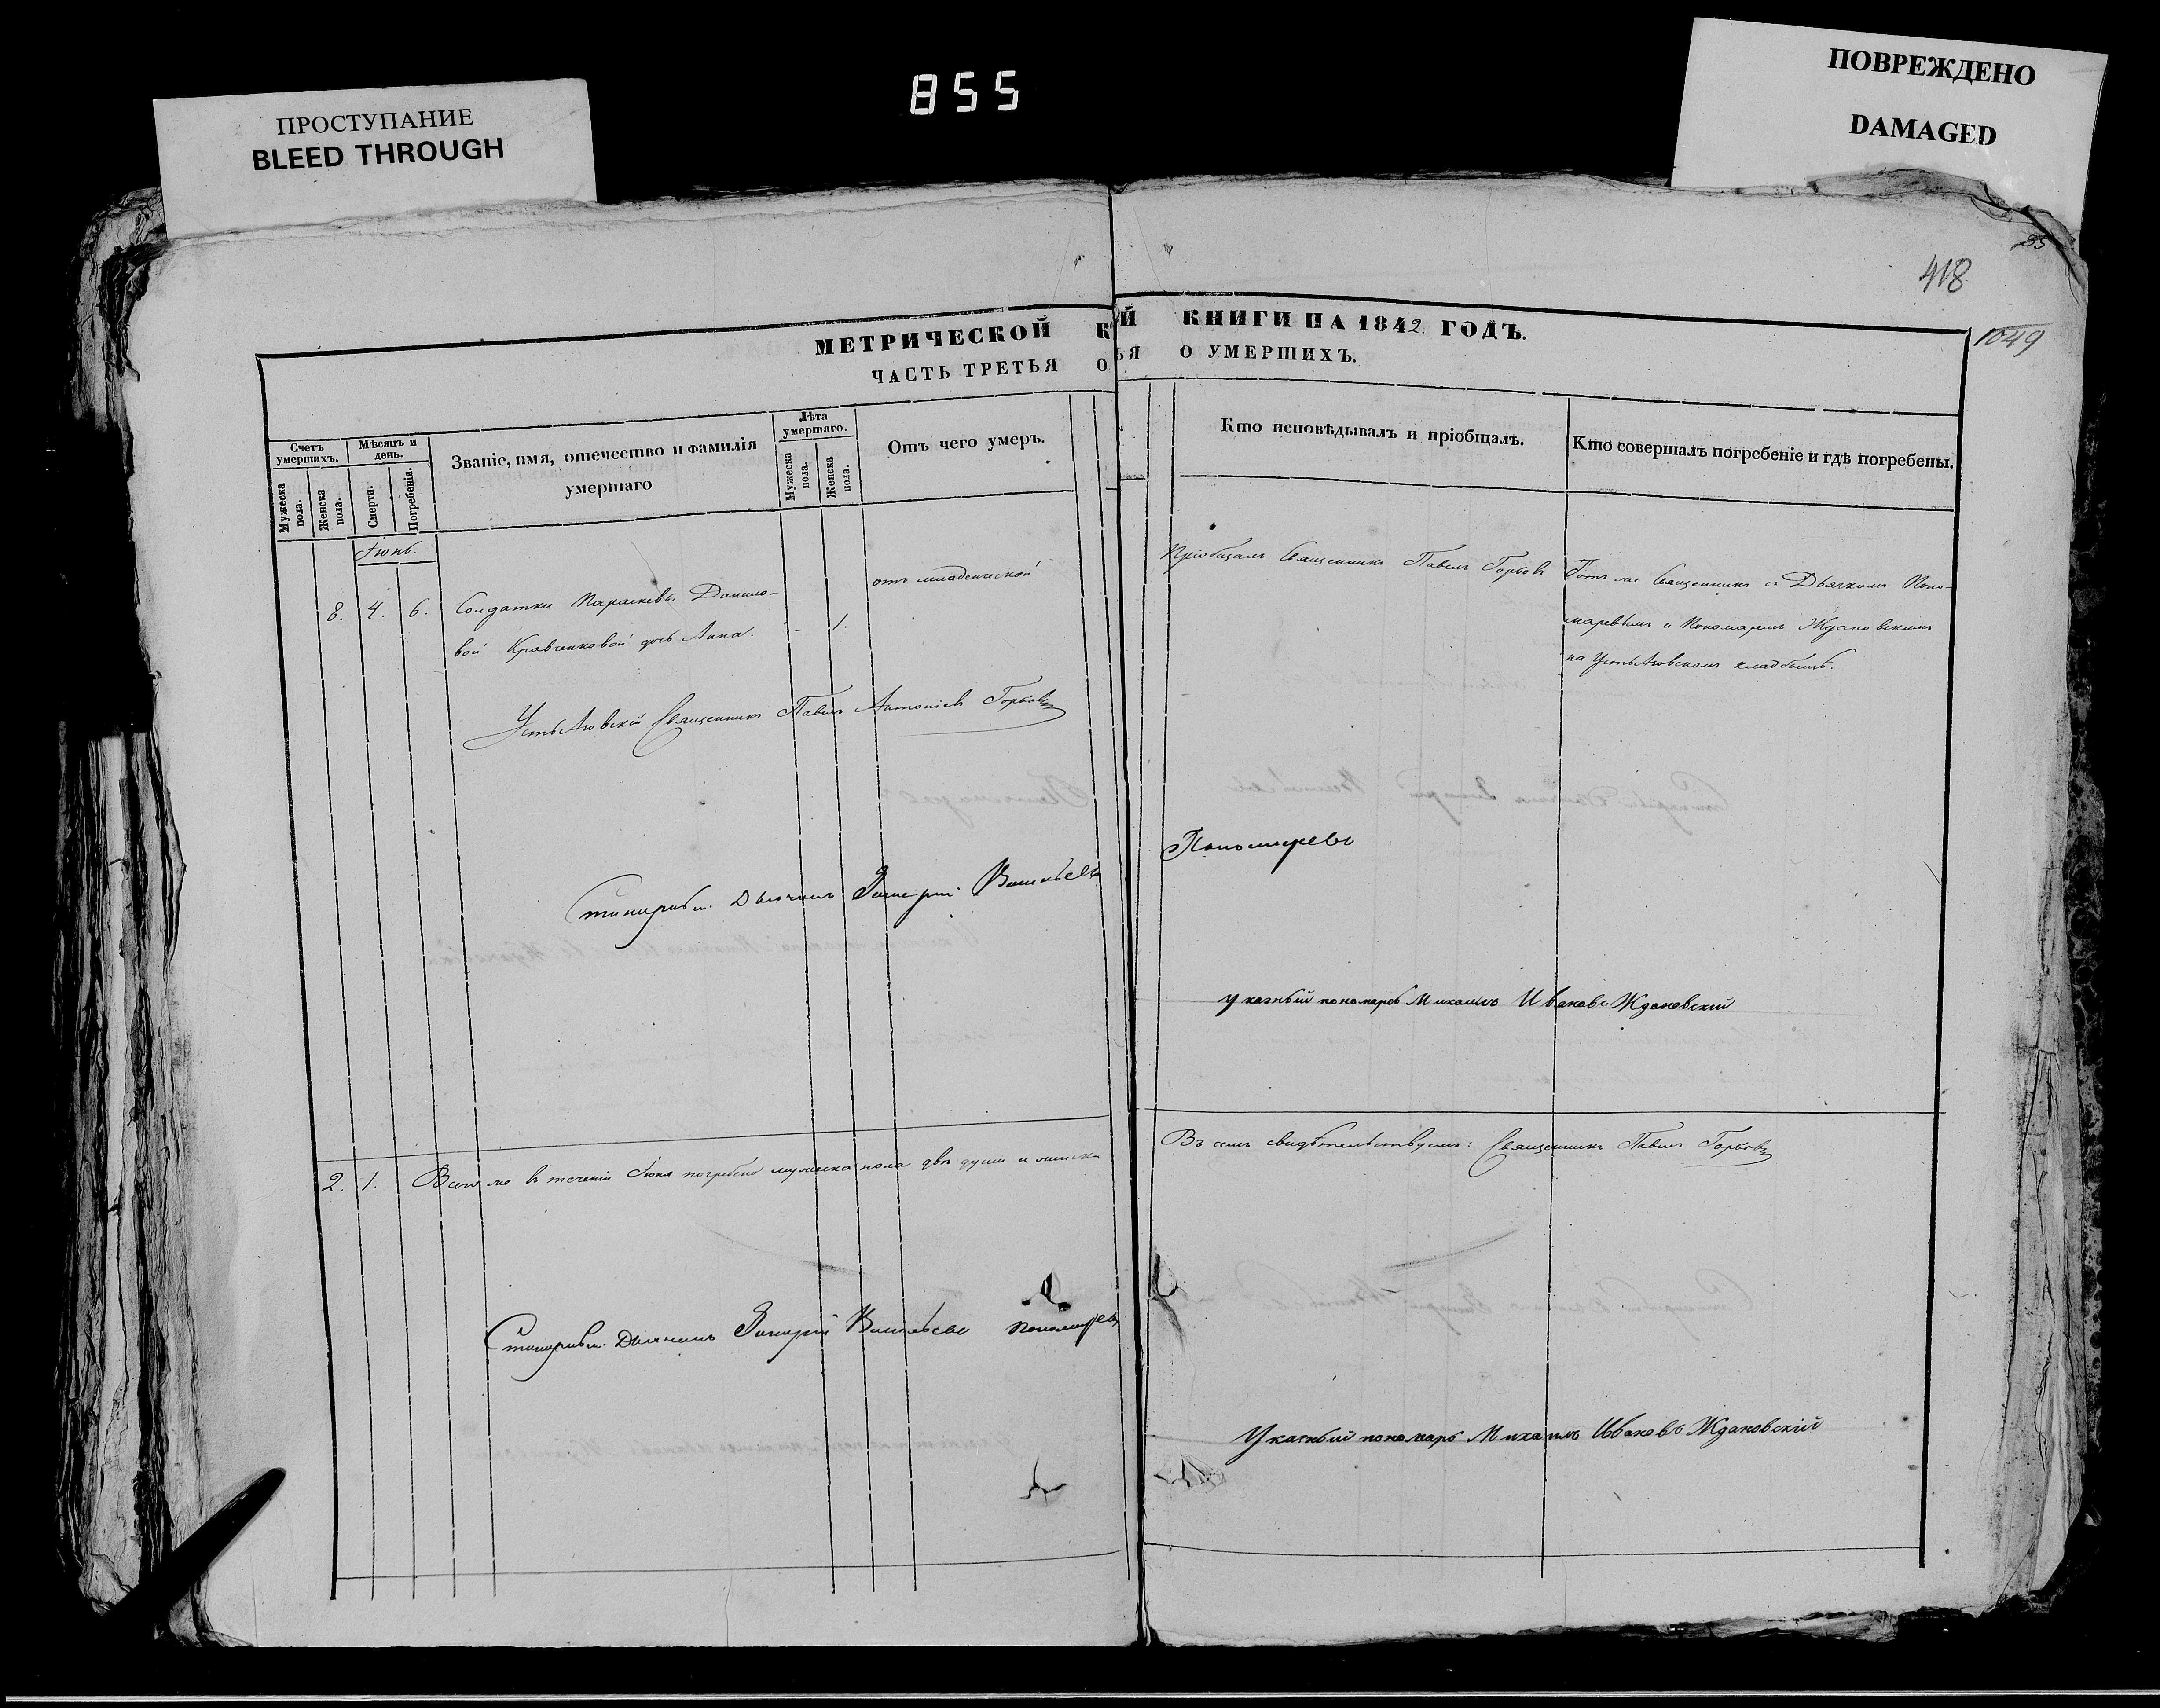 855
ПРОСТУПАНИЕ
BLEED THROUGH
ПОВРЕЖДЕНО
DAMAGED
35
418
1049
МЕТРИЧЕСКОЙ КНИГИ НА 1842 ГОДЪ.
ЧАСТЬ ТРЕТЬЯ О УМЕРШИХЪ.
Счетъ умершихъ.
Мужеска пола.
Женска пола.
Мѣсяцъ и день.
Смерти.
Погребенія.
Званіе, имя, отечество и фамилія
умершаго
Лѣта умершаго.
Мужеска пола.
Женска пола.
Отъ чего умеръ.
Кто исповѣдывалъ и пріобщалъ.
Кто совершалъ погребеніе и гдѣ погребены.
Іюнь.
8. 4. 6.
Солдатки Параскевы Данило-
вой Кравченковой дочь Анна.
- 1.
отъ младенческой
Пріобщалъ Священникъ Павелъ Горбовъ
Тотъ же Священникъ съ Дьячкомъ Поно-
маревымъ и Пономаремъ Ждановскимъ
на кладбищѣ.
Священникъ Павелъ Антоніевъ Горбовъ
Дьячекъ Захарій Васильевъ Пономаревъ
указный пономарь Михаилъ Ивановъ Ждановскій
2. 1. Всего же въ теченіи Іюня погребено мужеска пола двѣ души и женска
Въ семъ свидѣтельствуемъ: Священникъ Павелъ Горбовъ
Дьячекъ Захарій Васильевъ Пономаревъ
Указный пономарь Михаилъ Ивановъ Ждановскій